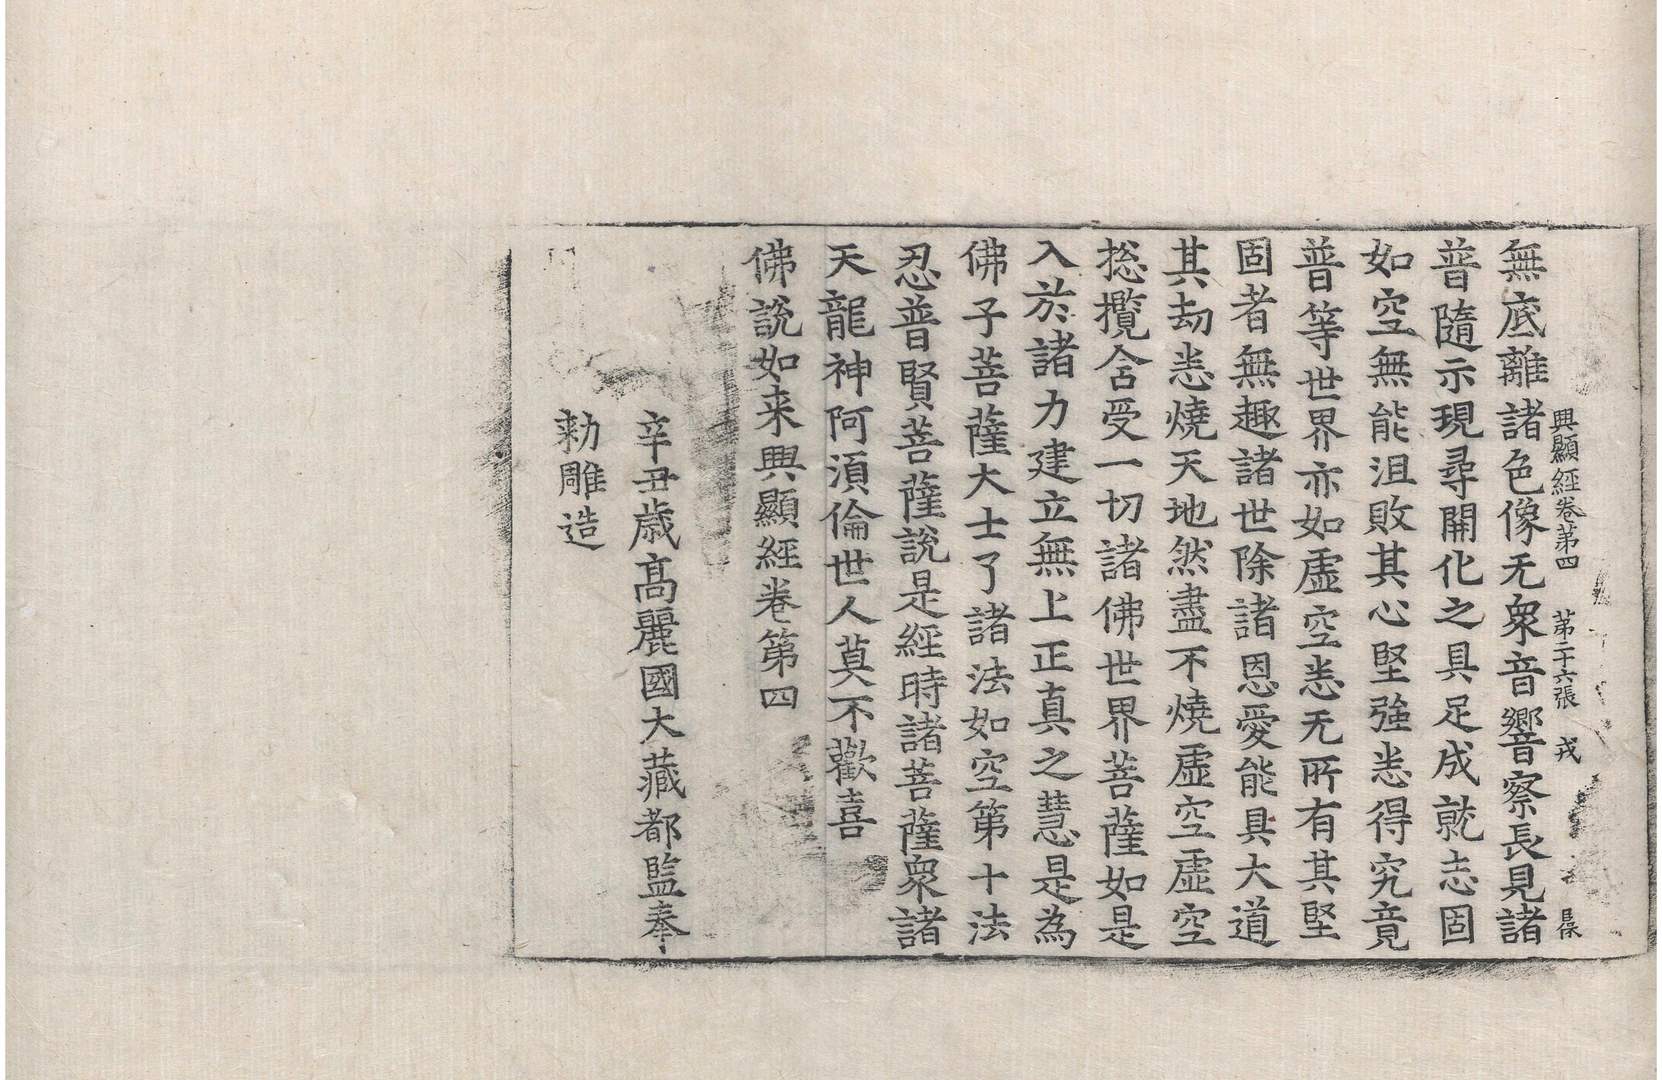 興顯經卷第四 第二十六張 戎
無底離諸色像无衆音響察長見諸
普隨示現尋開化之具足成就志固
如空無能沮敗其心堅強悉得究竟
普等世界亦如虛空悉无所有其堅
固者無趣諸世除諸恩愛能具大道
其劫悉燒天地然盡不燒虛空虛空
捴攬含受一切諸佛世界菩薩如是
入於諸力建立無上正真之慧是為
佛子菩薩大士了諸法如空第十法
忍普賢菩薩說是經時諸菩薩衆諸
天龍神阿湏倫世人莫不歡喜
佛說如来興顯經卷第四
辛丑歲高麗國大藏都監奉
勑雕造